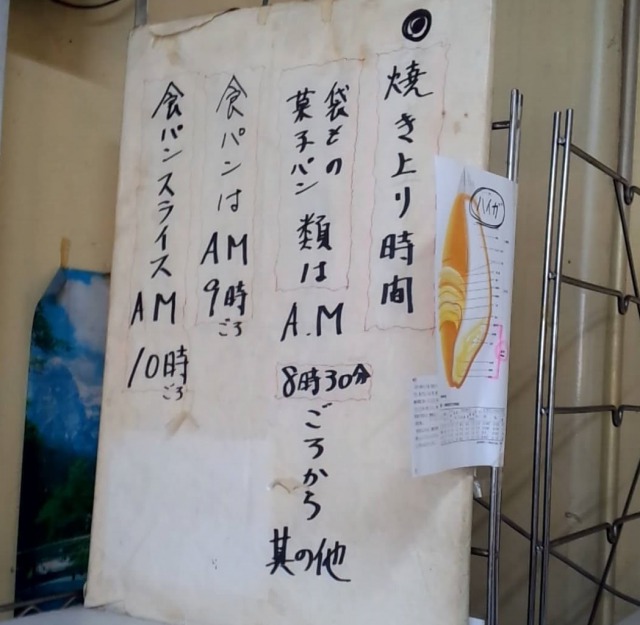 ◎
焼き上り時間
袋もの
菓子パン
類は
A.M
8時30分
ごろから
其の他
食パンは
AM
9時
ごろ
食パンスライス
AM
10時
ごろ
ハイガ